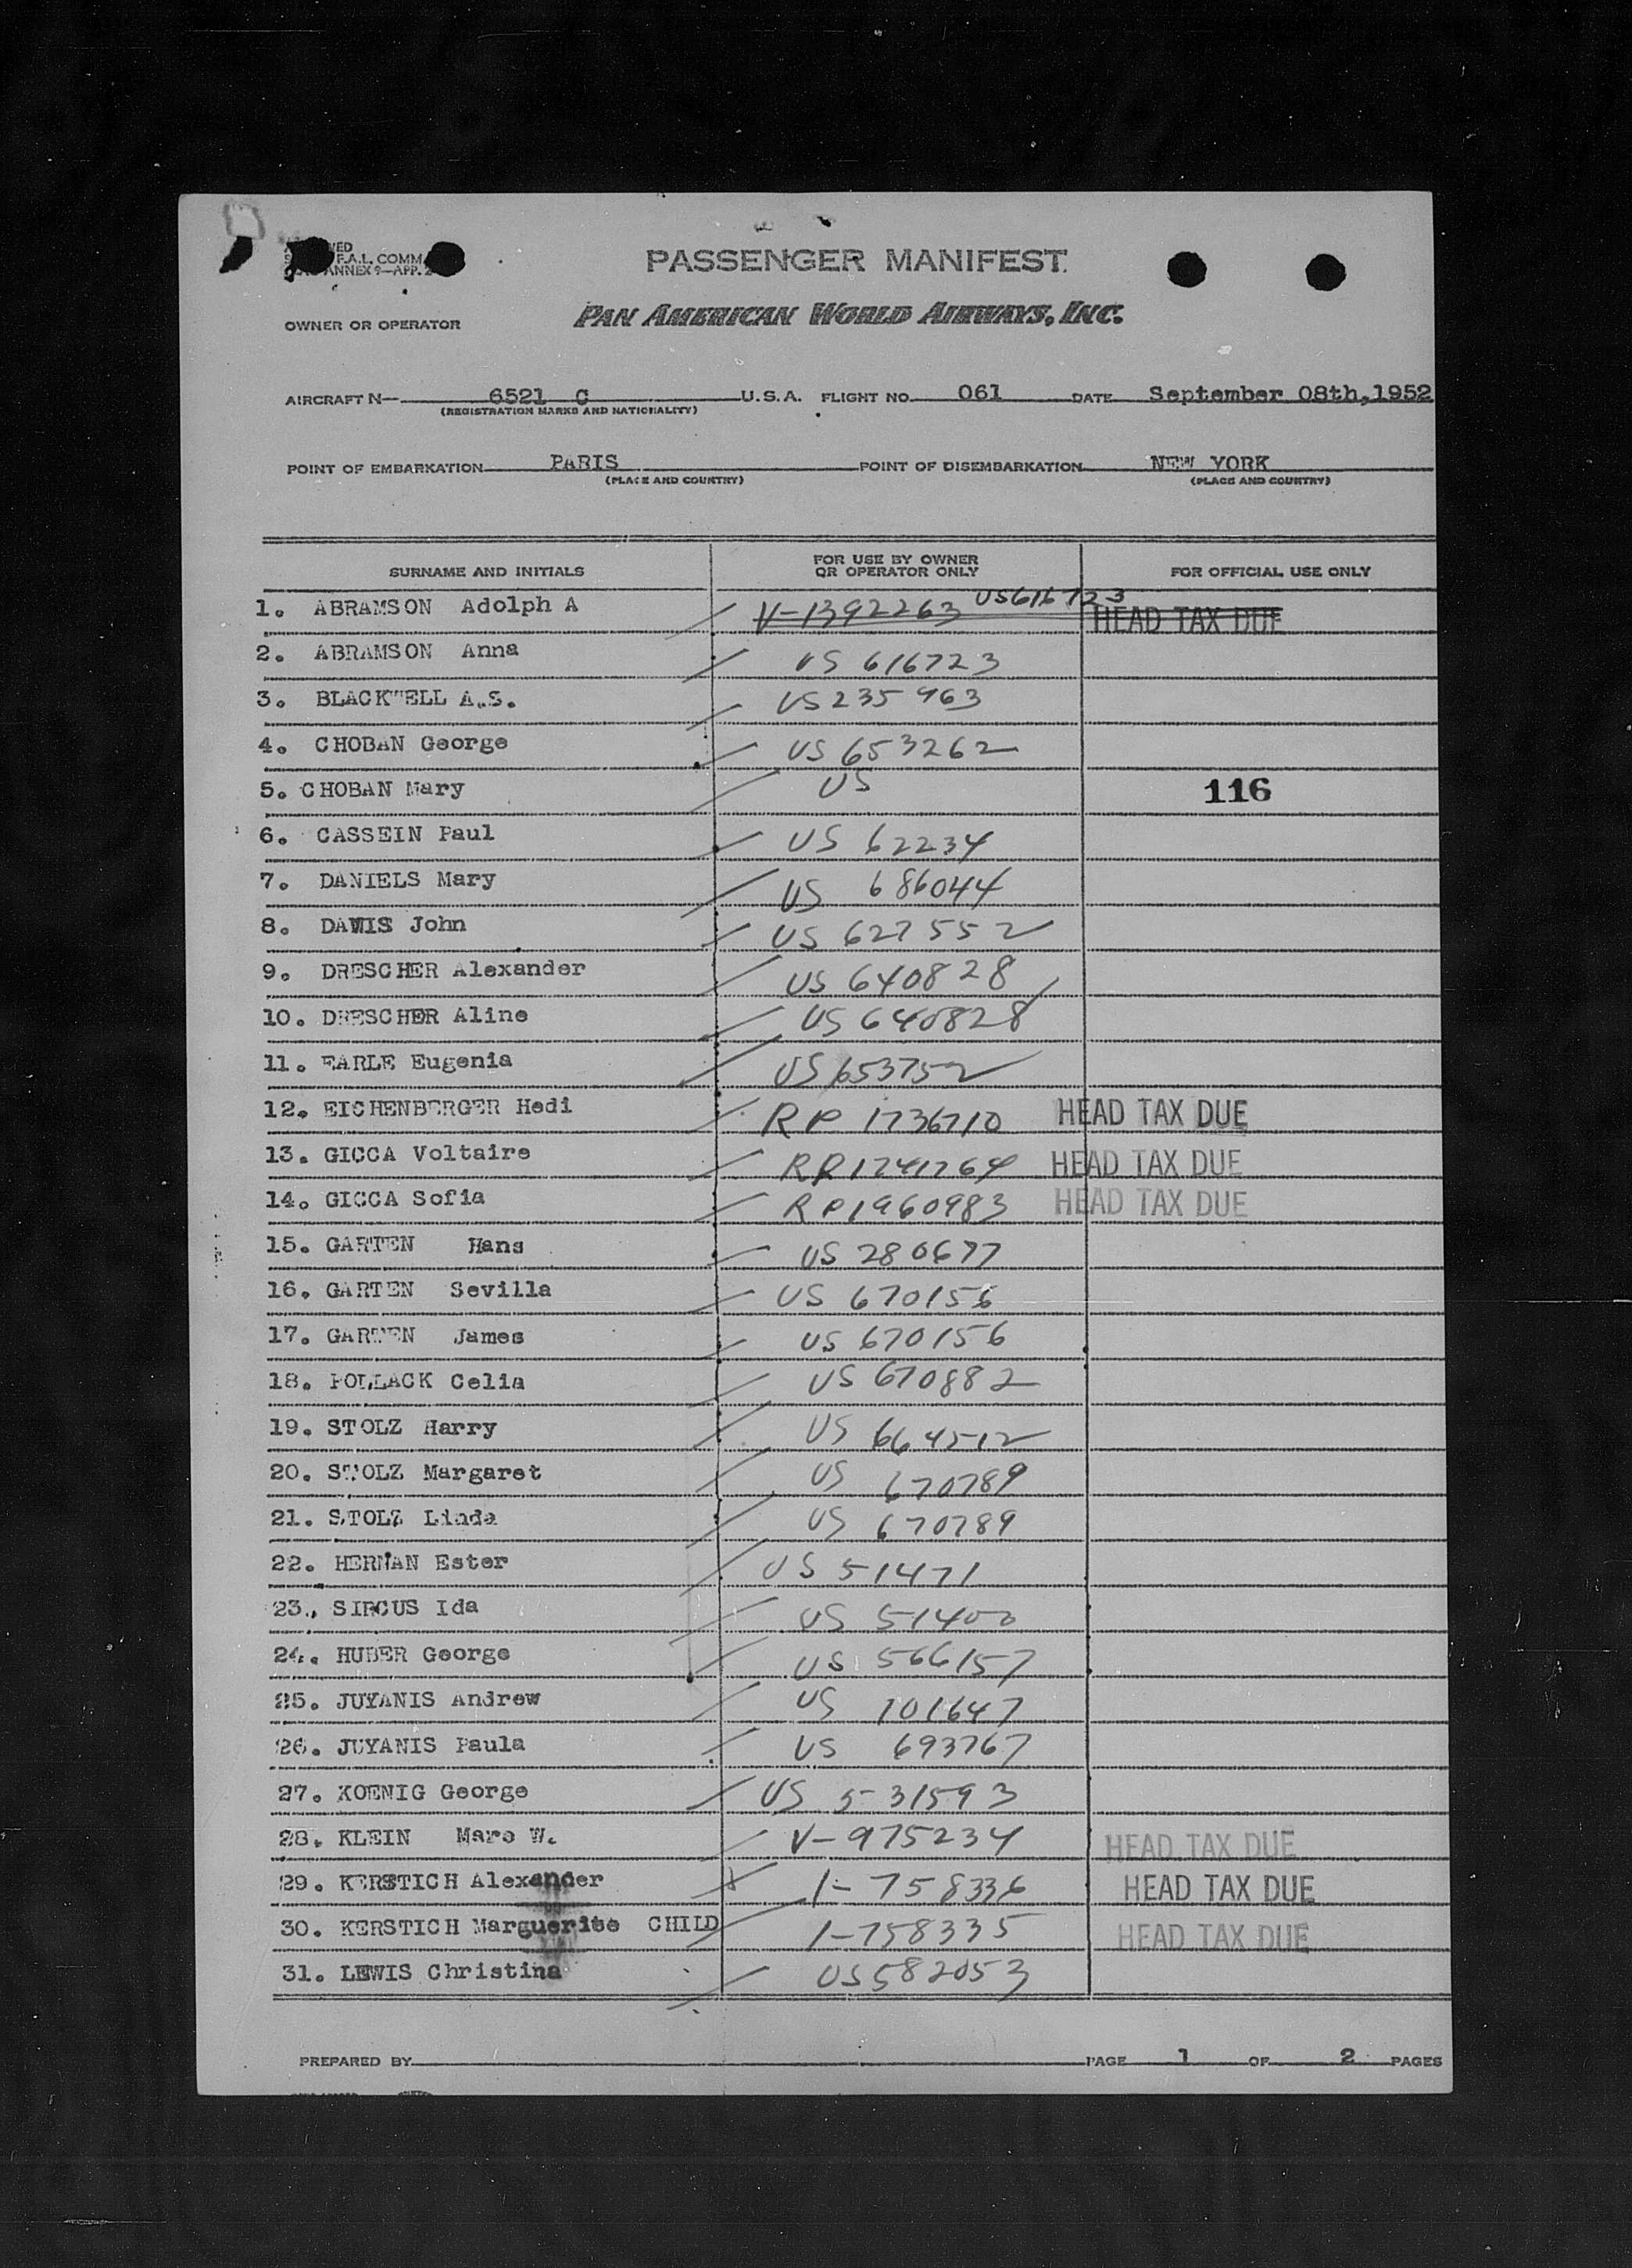 F.A.L. COMM
ANNEX 9—APP. 2
PASSENGER MANIFEST
OWNER OR OPERATOR PAN AMERICAN WORLD AIRWAYS, INC.
AIRCRAFT N— 6521 C U.S.A. FLIGHT NO. 061 DATE September 08th,1952
(REGISTRATION MARKS AND NATIONALITY)
POINT OF EMBARKATION PARIS POINT OF DISEMBARKATION NEW YORK
(PLACE AND COUNTRY) (PLACE AND COUNTRY)
SURNAME AND INITIALS FOR USE BY OWNER OR OPERATOR ONLY FOR OFFICIAL USE ONLY
1. ABRAMSON Adolph A V-1392263 US616723 HEAD TAX DUE
2. ABRAMSON Anna US 616723
3. BLACKWELL A.S. US 235963
4. CHOBAN George US 653262
5. CHOBAN Mary US 116
6. CASSEIN Paul US 62234
7. DANIELS Mary US 686044
8. DAVIS John US 627552
9. DRESCHER Alexander US 640828
10. DRESCHER Aline US 640828
11. EARLE Eugenia US 653752
12. EICHENBERGER Hedi RP 1736710 HEAD TAX DUE
13. GICCA Voltaire RP 1741764 HEAD TAX DUE
14. GICCA Sofia RP 1960983 HEAD TAX DUE
15. GARTEN Hans US 280677
16. GARTEN Sevilla US 670156
17. GARTEN James US 670156
18. POLLACK Celia US 670882
19. STOLZ Harry US 664512
20. STOLZ Margaret US 670789
21. STOLZ Linda US 670789
22. HERMAN Ester US 51471
23. SIRCUS Ida US 51400
24. HUBER George US 566157
25. JUYANIS Andrew US 101647
26. JUYANIS Paula US 693767
27. KOENIG George US 531593
28. KLEIN Marc W. V-975234 HEAD TAX DUE
29. KERSTICH Alexander I-758336 HEAD TAX DUE
30. KERSTICH Marguerite CHILD I-758335 HEAD TAX DUE
31. LEWIS Christina US 582053
PREPARED BY PAGE 1 OF 2 PAGES